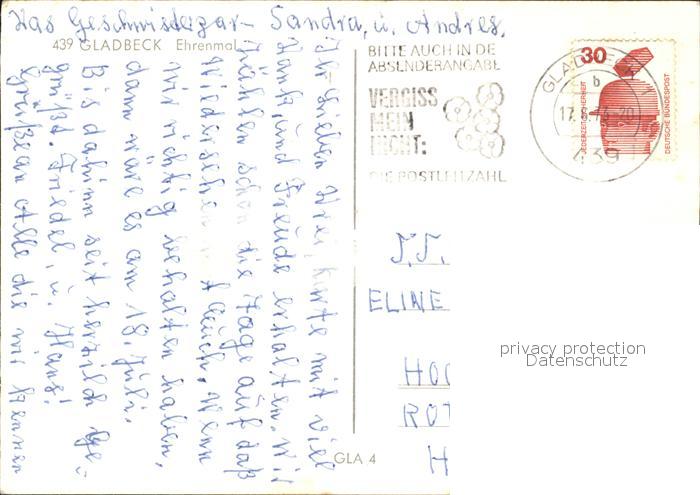 Das Geschwisterpar- Sandra, u. Andres.
439 GLADBECK Ehrenmal
Ihr Lieben Drei, Karte mit viel
Dank, und Freude erhalten. Wir
zählen schon die Tage auf daß
Wiedersehen Euch, Wenn
wir richtig behalten haben,
dann wäre es am 18. Juli.
Bis dahinn seit herzlich ge-
grüßt. Friedel, u. Hans!
Grüße an Alle die wir kennen
GLA 4
BITTE AUCH IN DE
ABSENDERANGABE
VERGISS
MEIN
NICHT:
DIE POSTLEITZAHL
GLADBE
b
17.6.7 -20
439
30
JEDERZEIT SICHERHEIT
DEUTSCHE BUNDESPOST
ELINE
HOO
ROT
H
privacy protection
Datenschutz